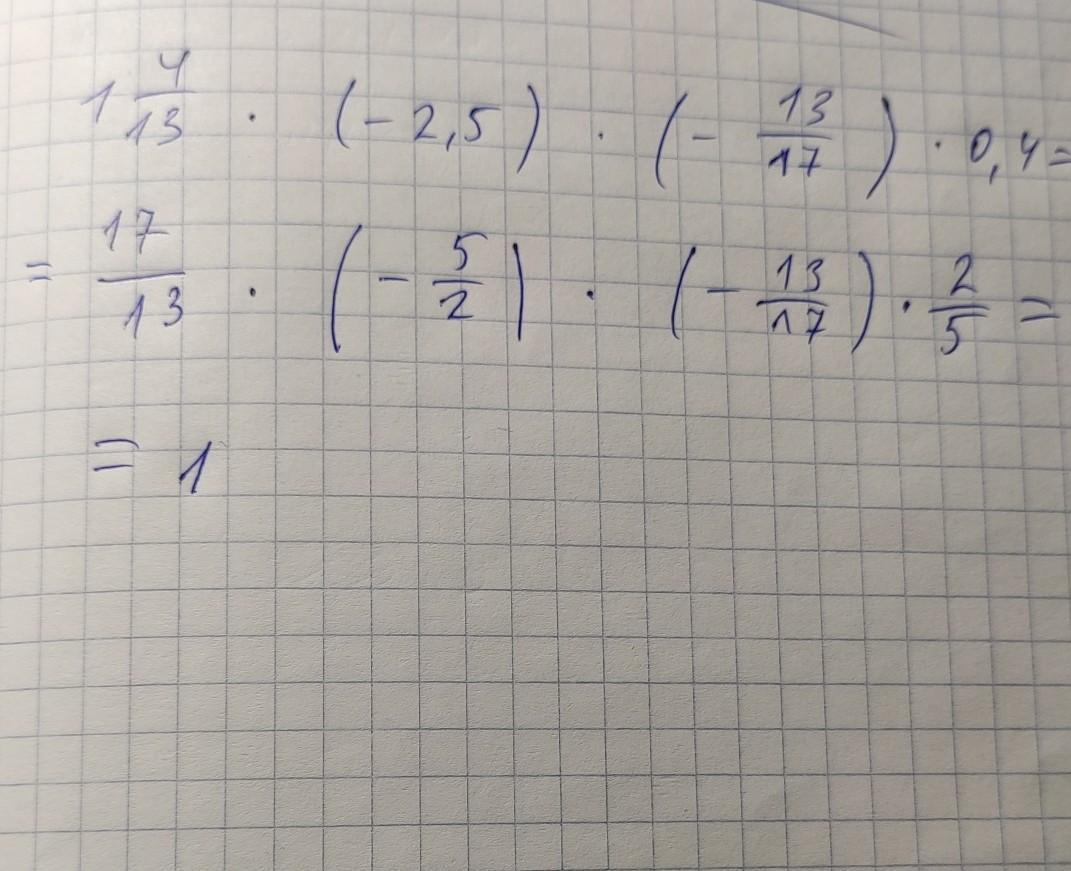 1 4/13 · (-2,5) · (- 13/17) · 0,4 =
= 17/13 · (- 5/2) · (- 13/17) · 2/5 =
= 1